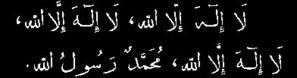 لَا إِلٰهَ إِلَّا الله، لَا إِلٰهَ إِلَّا الله،
لَا إِلٰهَ إِلَّا الله، مُحَمَّدٌ رَسُولُ الله.